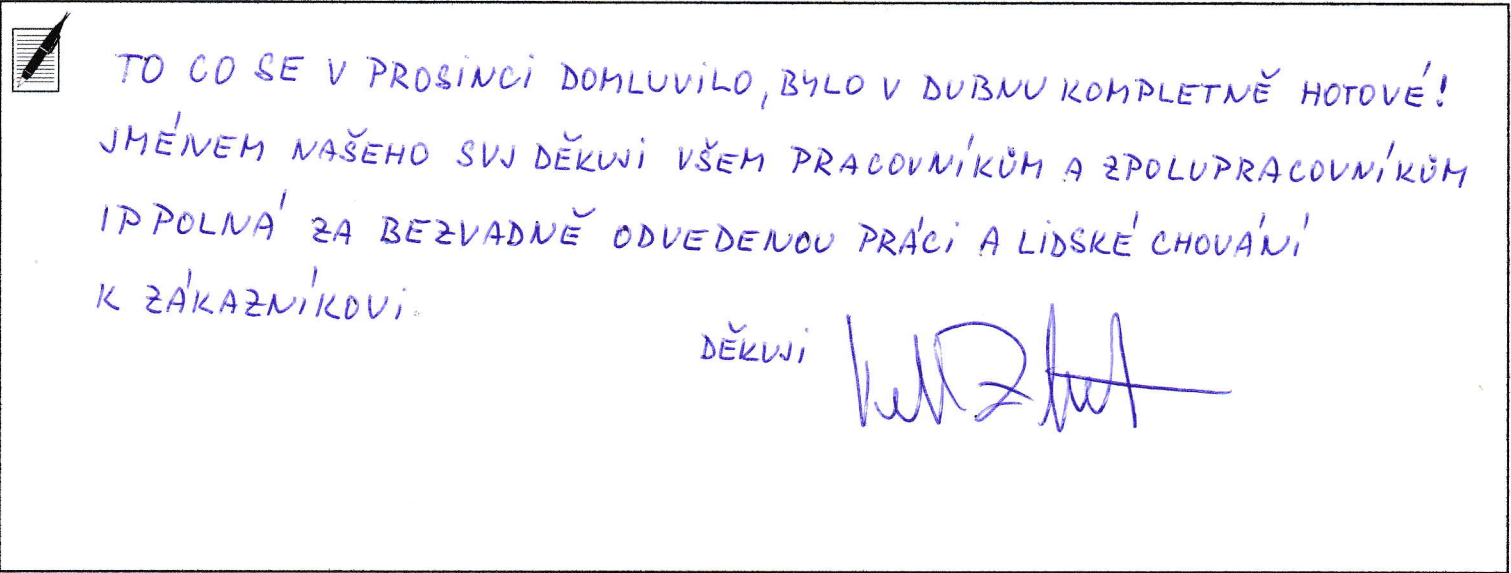 TO CO SE V PROSINCI DOMLUVILO, BYLO V DUBNU KOMPLETNĚ HOTOVÉ!
JMÉNEM NAŠEHO SVJ DĚKUJI VŠEM PRACOVNÍKŮM A ZPOLUPRACOVNÍKŮM
IP POLNÁ ZA BEZVADNĚ ODVEDENOU PRÁCI A LIDSKÉ CHOVÁNÍ
K ZÁKAZNÍKOVI.
DĚKUJI